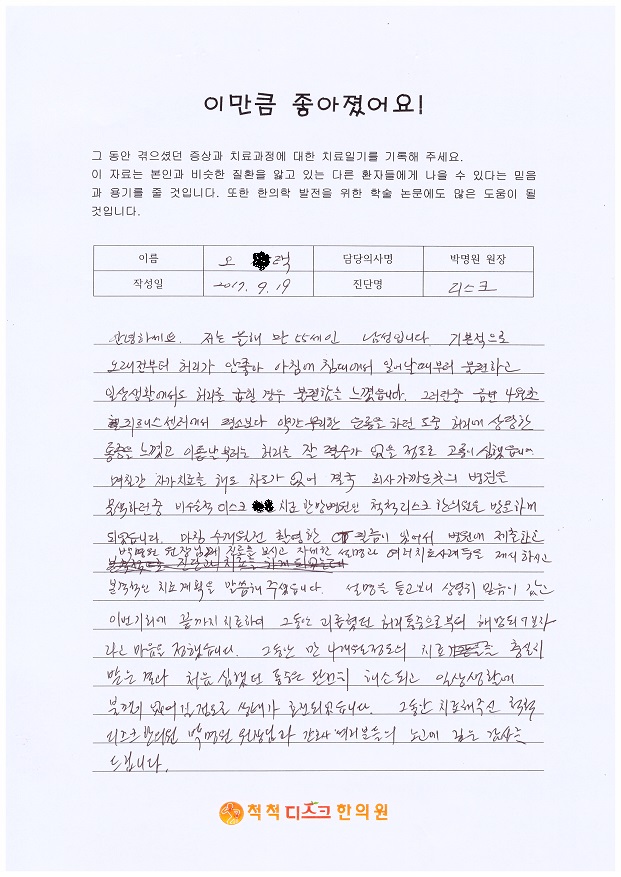 이만큼 좋아졌어요!
그 동안 겪으셨던 증상과 치료과정에 대한 치료일기를 기록해 주세요.
이 자료는 본인과 비슷한 질환을 앓고 있는 다른 환자들에게 나을 수 있다는 믿음
과 용기를 줄 것입니다. 또한 한의학 발전을 위한 학술 논문에도 많은 도움이 될
것입니다.
이름 오 택 담당의사명 박명원 원장
작성일 2017. 9. 19 진단명 디스크
안녕하세요. 저는 올해 만 55세인 남성입니다. 기본적으로
오래전부터 허리가 안좋아 아침에 침대에서 일어날때부터 불편하고
일상생활에서도 허리를 굽힐 경우 불편함을 느꼈습니다. 그러던중 금년 4월초
휘트니스센터에서 평소보다 약간 무리한 운동을 하던 도중 허리에 상당한
통증을 느꼈고 이튿날부터는 허리를 잘 펼수가 없을 정도로 고통이 심했습니다
며칠간 자가치료를 해도 차도가 없어 결국 회사가까운곳의 병원을
목색하던중 비수술적 디스크 치료 한방병원인 척척디스크 한의원을 방문하게
되었습니다. 마침 수개월전 촬영한 CT 필름이 있어서 병원에 제출하고
박명원 원장님께 진료를 보시고 자세한 설명과 여러치료사례등을 제시하시고
본격적인 치료계획을 말씀해 주셨습니다. 설명을 듣고보니 상당히 믿음이 갔고
이번기회에 끝까지 치료하여 그동안 괴롭혔던 허리통증으로부터 해방되기 보자
라고 마음을 정했습니다. 그동안 만 4개월정도의 치료를 충실히
받은 결과 처음 심했던 통증은 완전히 해소되고 일상생활에
불편이 없어질 정도로 상태가 호전되었습니다. 그동안 치료해주신 척척
디스크한의원 박명원 원장님과 간호사 여러분들의 노고에 깊은 감사를
드립니다.
척척디스크한의원